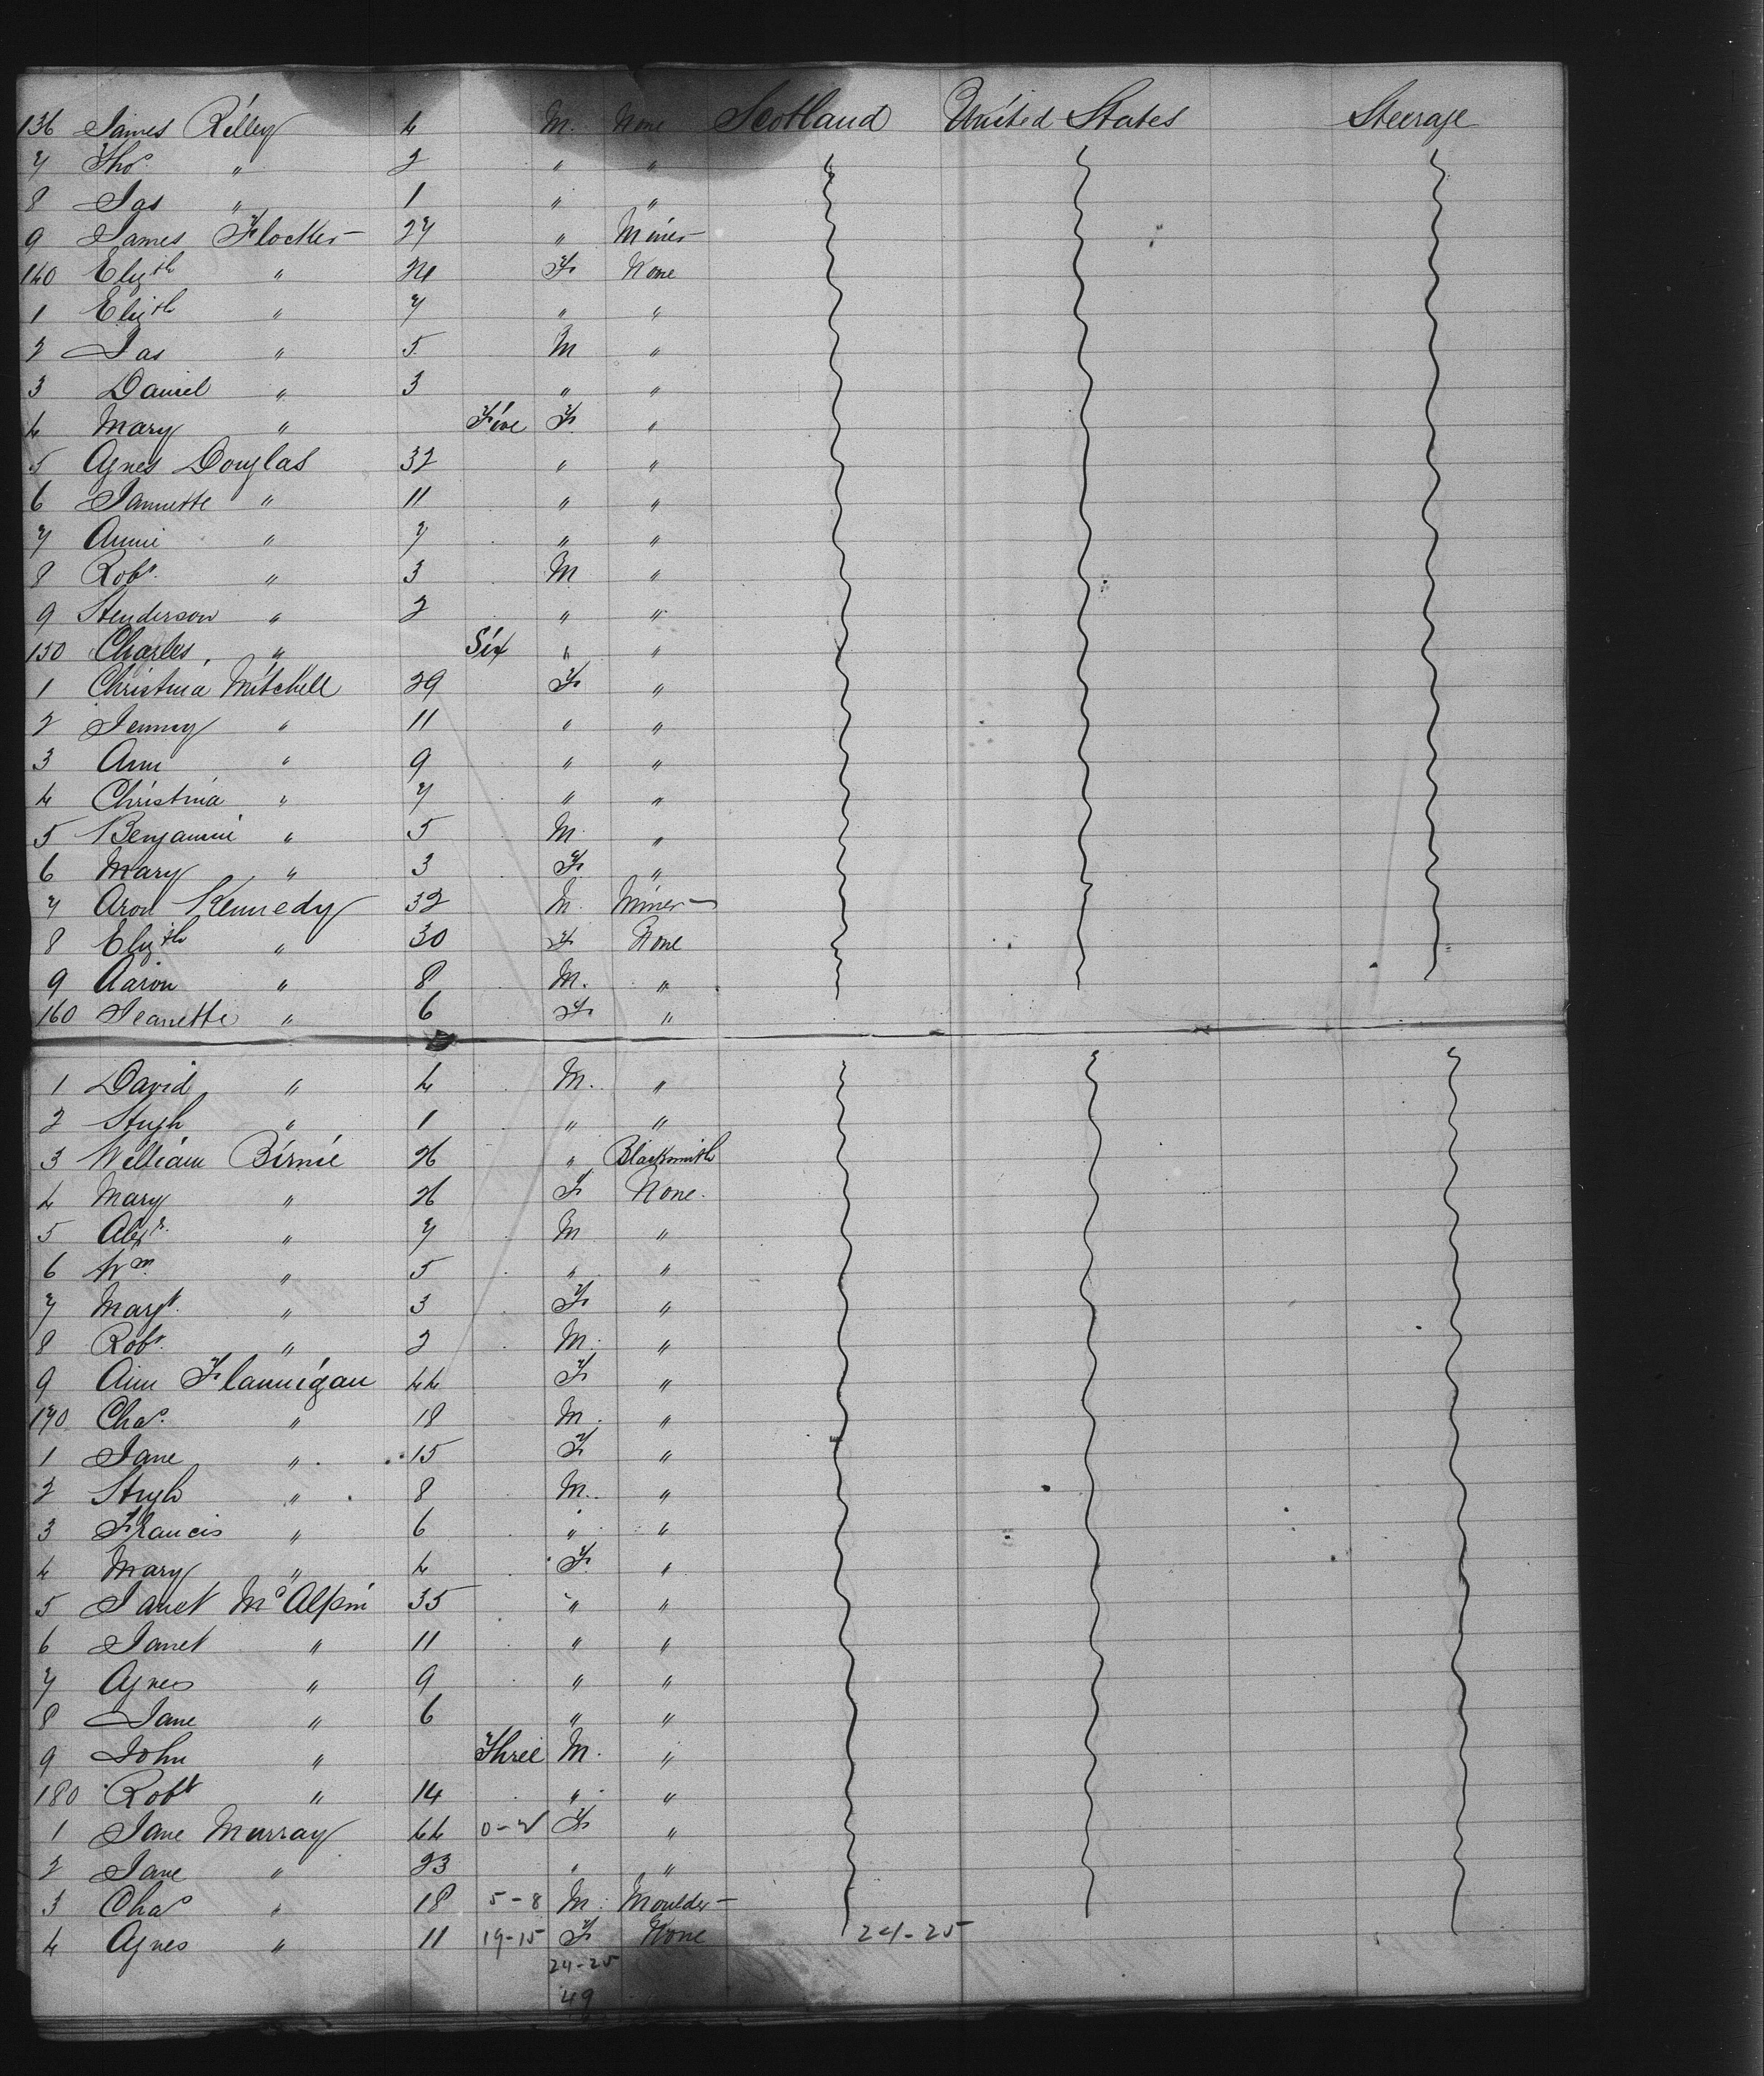 136 James Rilley 4 M. None Scotland United States Steerage
7 Thos. " 2 " "
8 Jas " 1 " "
9 James Flocker 27 " Miner
140 Elizth " 24 F None
1 Elizth " 7 " "
2 Jas " 5 M "
3 Daniel " 3 " "
4 Mary " Five F "
5 Agnes Douglas 32 " "
6 Jannette " 11 " "
7 Annie " 7 " "
8 Robt. " 3 M "
9 Henderson " 2 " "
150 Charles " Six " "
1 Christina Mitchell 29 F "
2 Jenny " 11 " "
3 Ann " 9 " "
4 Christina " 7 " "
5 Benjamin " 5 M "
6 Mary " 3 F "
7 Aron Kennedy 32 M. Miner
8 Elizth " 30 F None
9 Aaron " 8 M. "
160 Jeanette " 6 F "
1 David " 4 M. "
2 Hugh " 1 " "
3 William Birnie 26 " Blacksmith
4 Mary " 26 F None.
5 Alexr. " 7 M "
6 Wm. " 5 " "
7 Margt. " 3 F "
8 Robt. " 2 M. "
9 Ann Flannigan 44 F "
170 Chas. " 18 M. "
1 Jane " 15 F "
2 Hugh " 8 M. "
3 Francis " 6 " "
4 Mary " 4 F "
5 Janet McAlpin 35 " "
6 Janet " 11 " "
7 Agnes " 9 " "
8 Jane " 6 " "
9 John " Three M. "
180 Robt " 14 " "
1 Jane Murray 44 F "
2 Jane " 23 " "
3 Chas " 18 5-8 M. Moulder
4 Agnes " 11 19-15 F None 24-25
24-25
49